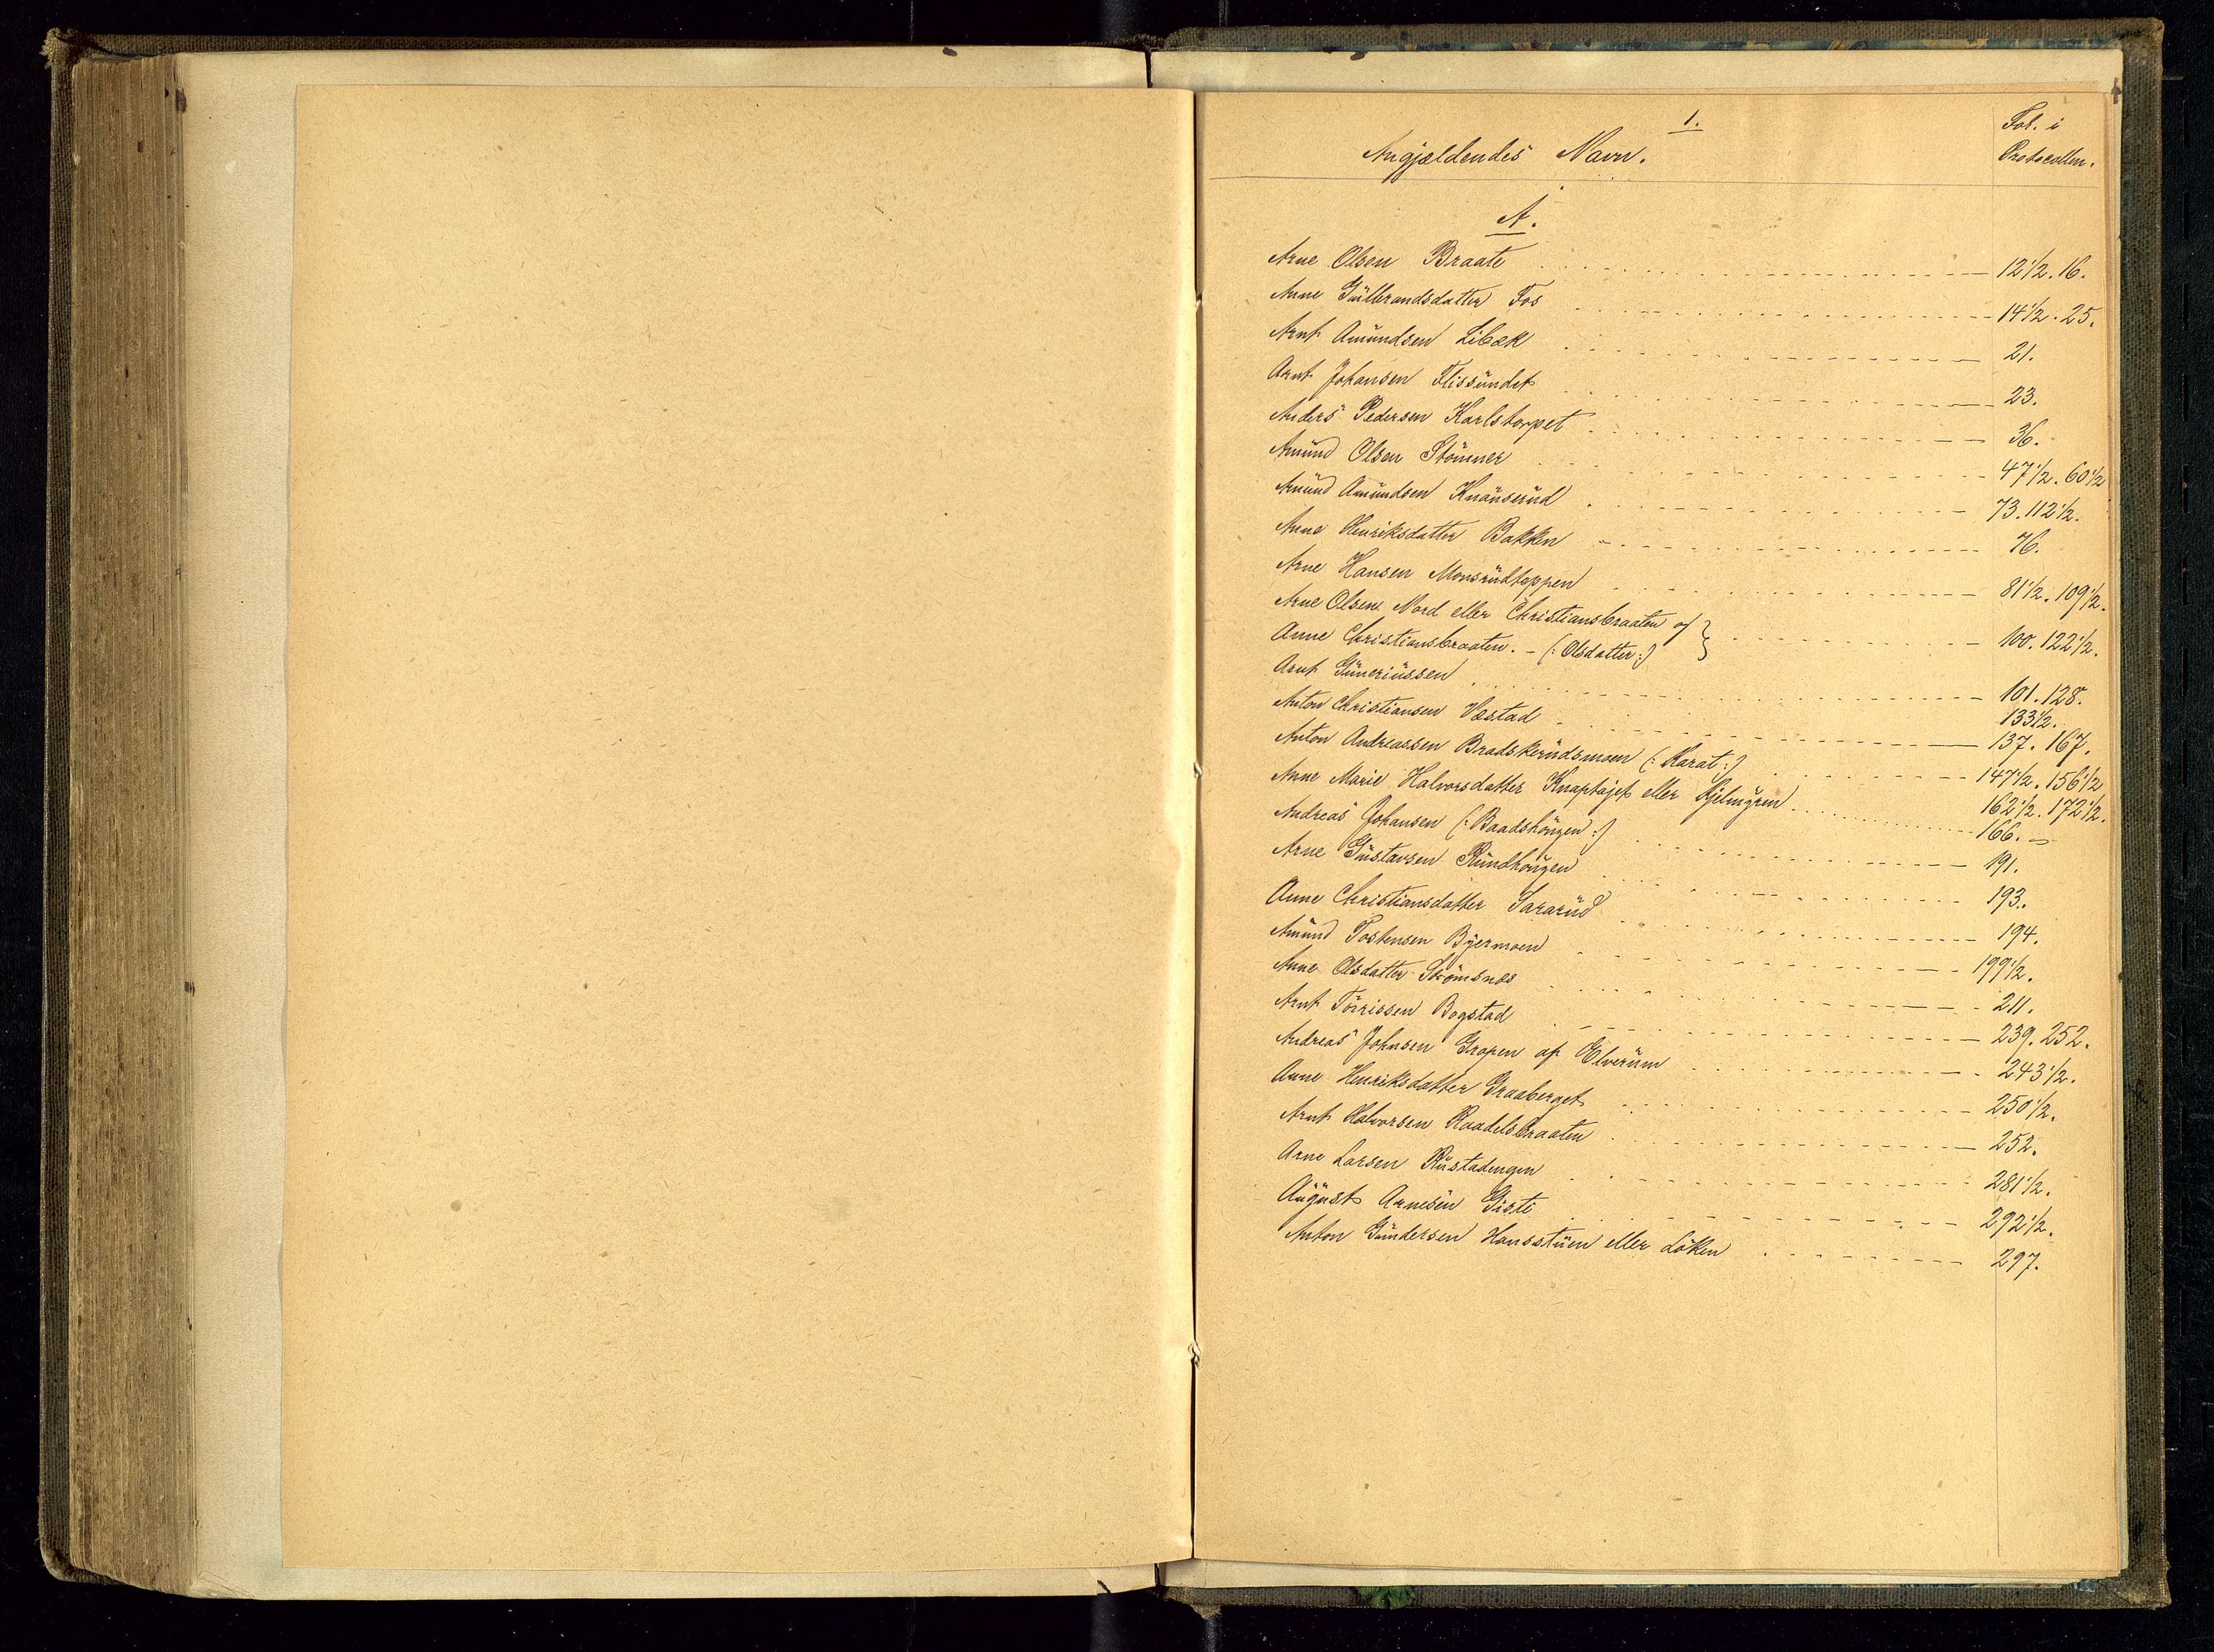 1.
Angjældendes Navn. Fol. i Protocollen.
A.
Arne Olsen Braate 12 1/2. 16.
Anne Gulbrandsdatter Fos 14 1/2. 25.
Arnt Amundsen Libæk 21.
Arnt Johansen Flissundet 23.
Anders Pedersen Karlstorpet 36.
Amund Olsen Stömner 47 1/2. 60 1/2
Amund Amundsen Knauserud 73. 112 1/2.
Anne Henriksdatter Bakken 76.
Arne Hansen Monsrudtoppen 81 1/2. 109 1/2.
Arne Olsen Nord eller Christiansbraaten og }
Anne Christiansbraaten. - (: Olsdatter :) } 100. 122 1/2.
Arnt Guneriussen 101. 128.
133 1/2.
Anton Christiansen Væstad 137. 167.
Anton Andreassen Bradskerudsmoen (: Karat :) 147 1/2. 156 1/2
162 1/2. 172 1/2.
Anne Marie Halvorsdatter Knaptajet eller Kjelmyren 166.
Andreas Johansen (: Baadshöugen :) 191.
Arne Gustavsen Rundhougen 193.
Anne Christiansdatter Sararud 194.
Amund Tostensen Byermoen 199 1/2.
Anne Olsdatter Strömsnæs 211.
Arnt Törrissen Bogstad 239. 252.
Andreas Johnsen Gropen af Elverum 243 1/2.
Anne Henriksdatter Graaberget 250 1/2.
Arnt Halvorsen Raadelsbraaten 252.
Arne Larsen Rustadengen 281 1/2.
August Arnesen Giste 292 1/2.
Anton Gundersen Hansstuen eller Löken 297.